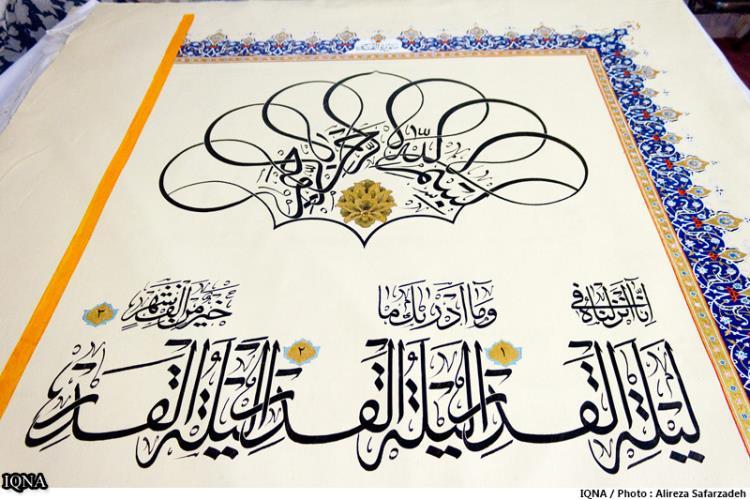 بسم الله الرحمن الرحیم
إنا أنزلناه في
وما أدرىك ما
خير من ألف شهر ٣
ليلة القدر ١ ليلة القدر ٢ ليلة القدر
IQNA
IQNA / Photo : Alireza Safarzadeh